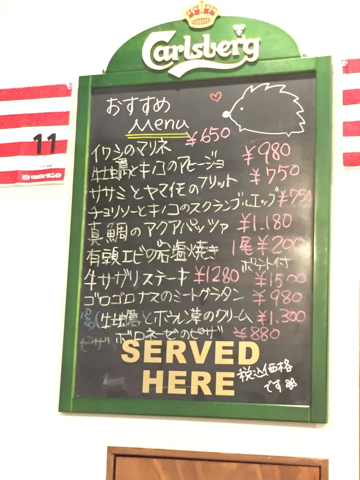 Carlsberg
おすすめ
Menu
イワシのマリネ ¥650
牡蠣とキノコのアヒージョ ¥980
ササミとヤマイモのフリット ¥750
チョリソーとキノコのスクランブルエッグ ¥750
真鯛のアクアパッツァ ¥1.180
有頭エビの岩塩焼き 1尾 ¥200
ポテト付
牛サガリステーキ ¥1280 ¥1500
ゴロゴロナスのミートグラタン ¥980
牡蠣とホウレン草のクリーム ¥1.300
ピザ ボロネーゼのピザ ¥880
SERVED
HERE
税込価格
です
11